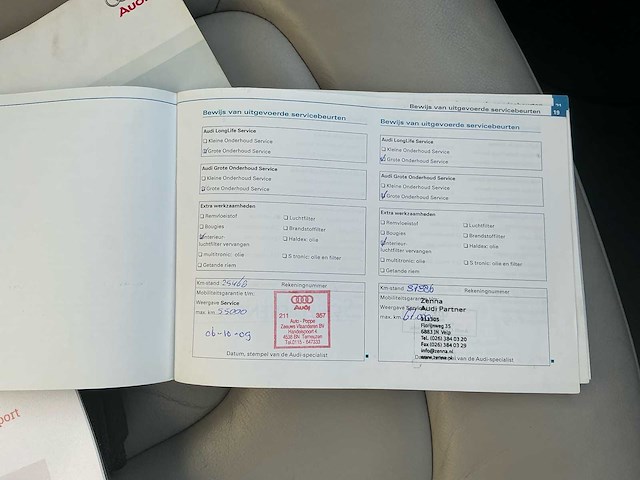 Audi
Bewijs van uitgevoerde servicebeurten
19
Bewijs van uitgevoerde servicebeurten
Audi LongLife Service
Kleine Onderhoud Service
Grote Onderhoud Service
Audi Grote Onderhoud Service
Kleine Onderhoud Service
Grote Onderhoud Service
Extra werkzaamheden
Remvloeistof
Luchtfilter
Bougies
Brandstoffilter
Interieur:
Haldex: olie
luchtfilter vervangen
multitronic: olie
S tronic: olie en filter
Getande riem
Km-stand 25460 Rekeningnummer
Mobiliteitsgarantie t/m:
Weergave Service
max. km 55000
06-10-09
Audi
211 367
Auto - Poppe
Zeeuws Vlaanderen BV
4538 BN Terneuzen
Tel. 0115 - 647333
Datum, stempel van de Audi-specialist
Bewijs van uitgevoerde servicebeurten
Audi LongLife Service
Kleine Onderhoud Service
Grote Onderhoud Service
Audi Grote Onderhoud Service
Kleine Onderhoud Service
Grote Onderhoud Service
Extra werkzaamheden
Remvloeistof
Luchtfilter
Bougies
Brandstoffilter
Interieur:
Haldex: olie
luchtfilter vervangen
multitronic: olie
S tronic: olie en filter
Getande riem
Km-stand Rekeningnummer
Mobiliteitsgarantie
Weergave Service
max. km
Zenna
Audi Partner
Florijnweg 35
6883 JN Velp
Tel. (026) 384 03 20
Fax (026) 384 03 29
info@zenna.nl
www.zenna.nl
van de Audi-specialist
port